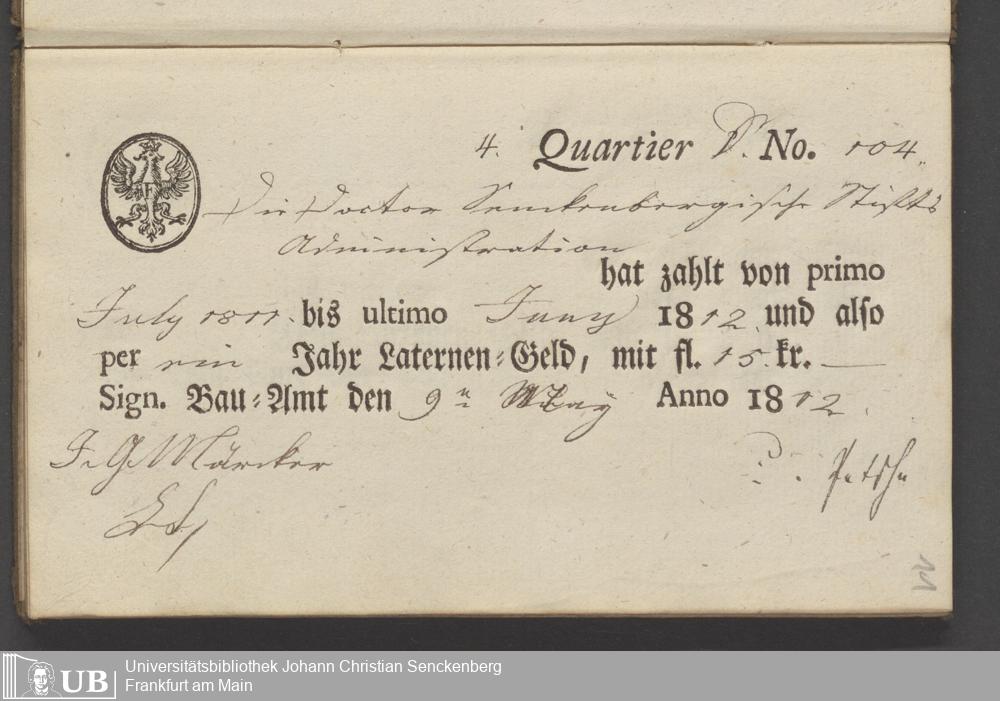 4. Quartier D. No. 104.
Die Doctor Senckenbergische Stifts
Administration
hat zahlt von primo
July 1811. bis ultimo Juny 1812. und also
per ein Jahr Laternen-Geld, mit fl. 15. kr. —
Sign. Bau-Amt den 9n May Anno 1812.
J. G. Märcker
W
UB Universitätsbibliothek Johann Christian Senckenberg
Frankfurt am Main